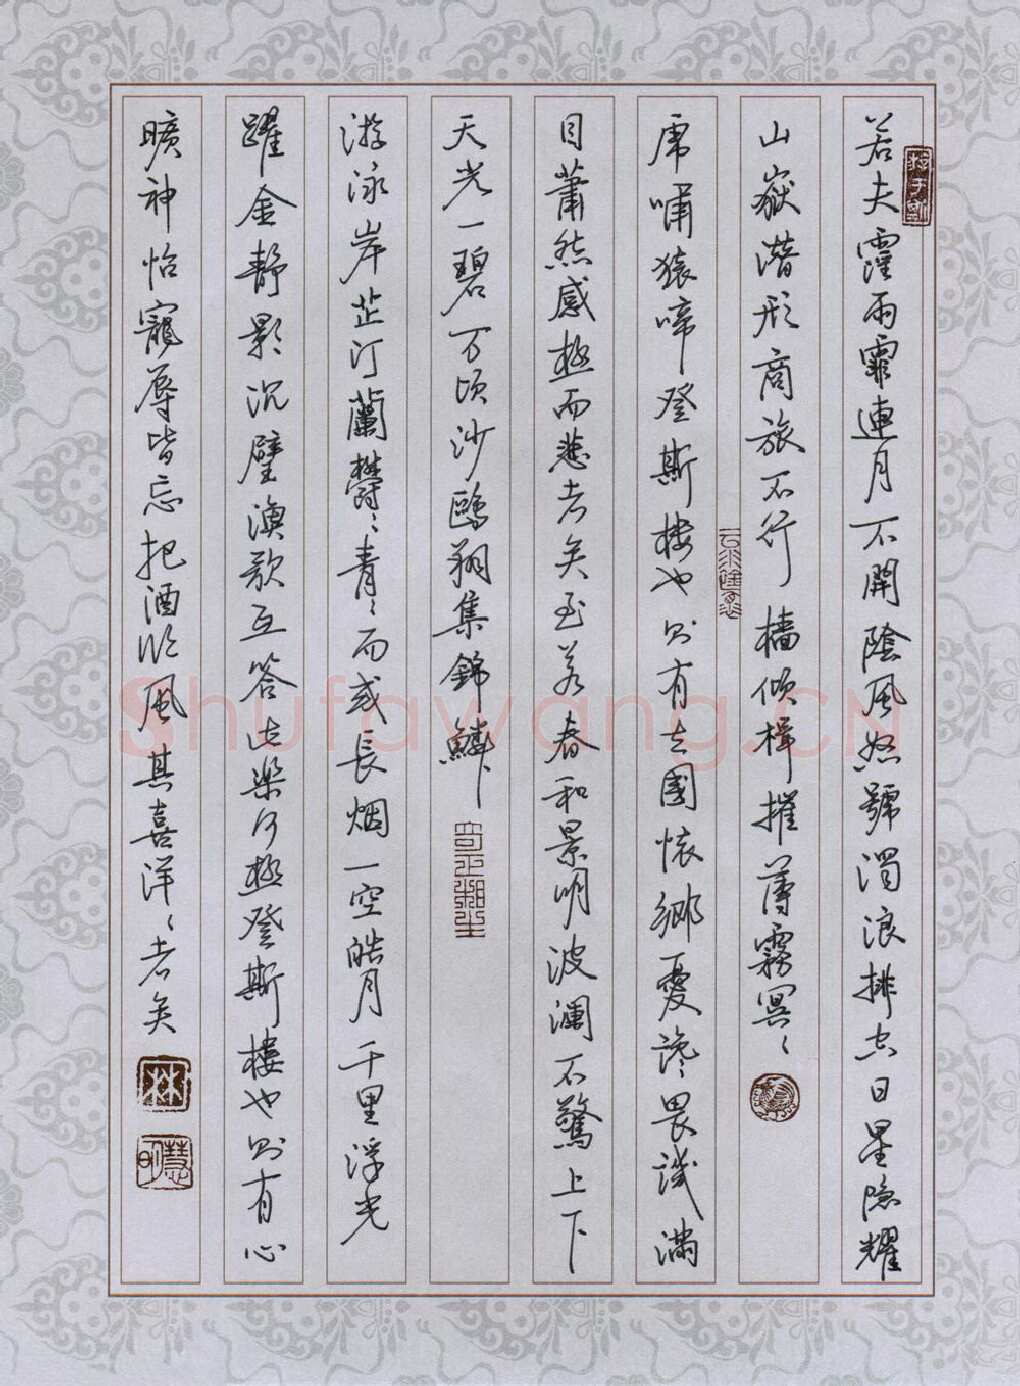 若夫霪雨霏連月不開陰風怒號濁浪排空日星隐耀
山嶽潛形商旅不行檣傾楫摧薄霧冥〻
虎嘯猿啼登斯楼也则有去國懷鄉憂讒畏譏滿
目蕭然感極而悲者矣至若春和景明波瀾不驚上下
天光一碧万頃沙鷗翔集錦鱗
游泳岸芷汀蘭鬱〻青〻而或長烟一空皓月千里浮光
躍金静影沉璧漁歌互答此樂何極登斯楼也则有心
曠神怡寵辱皆忘把酒临風其喜洋〻者矣
林
明慧
Shufawang.CN